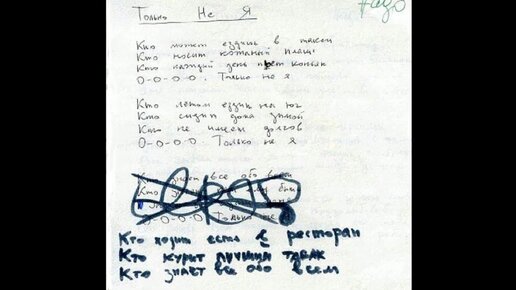 Только Не Я
Кто может ездить в такси
Кто носит кожаный плащ
Кто каждый день пьет коньяк
О-О-О-О. Только не я
Кто летом ездит на юг
Кто сидит дома зимой
Кто не имеет долгов
О-О-О-О. Только не я
Кто знает все обо всем
Кто
О-О-О-О Только не
Кто ходит есть в ресторан
Кто курит лучший табак
Кто знает все обо всем